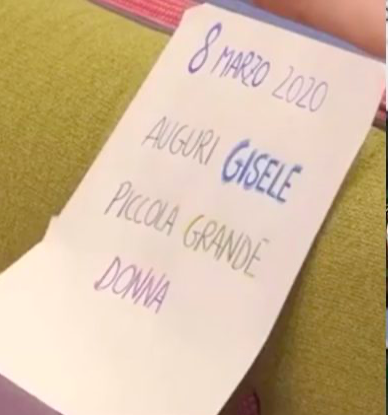 8 MARZO 2020
AUGURI GISELE
PICCOLA GRANDE
DONNA